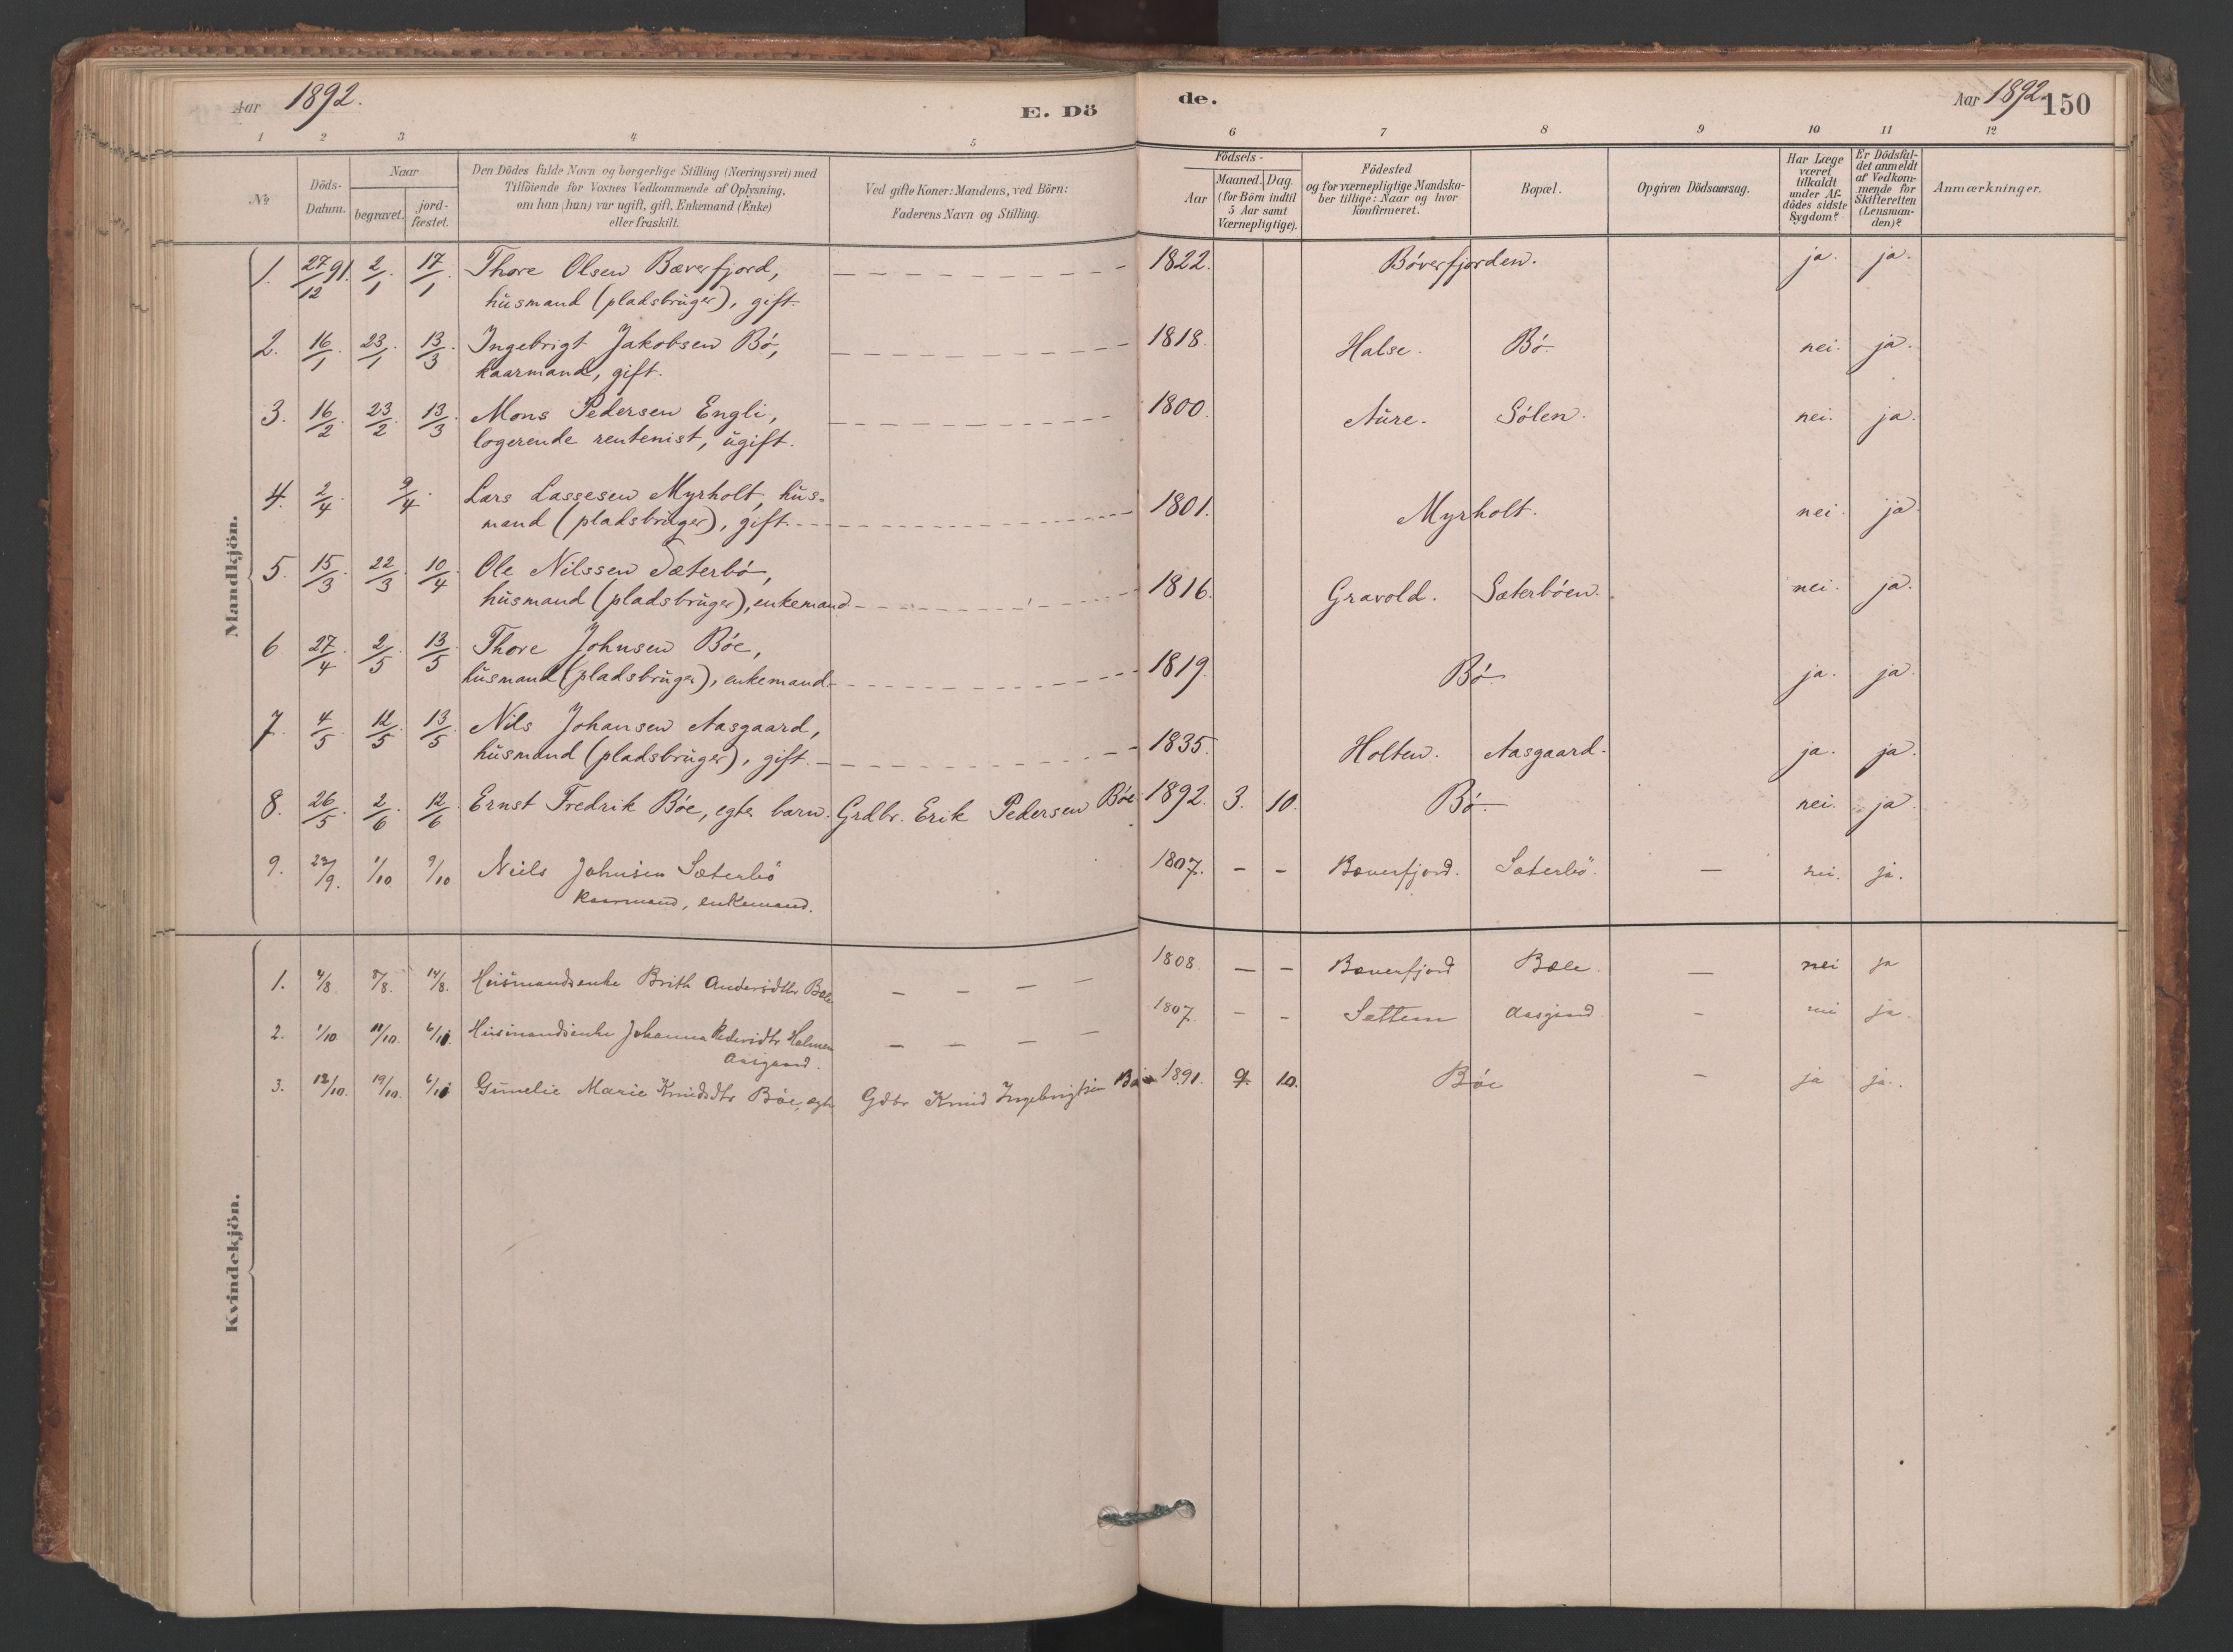 Aar 1892. E. Dö de. Aar 1892. 150
1 2 3 4 5 6 7 8 9 10 11 12
No
Döds-Datum.
Naar
begravet.
jord-fæstet.
Den Dödes fulde Navn og borgerlige Stilling (Næringsvei) med
Tilföiende for Voxnes Vedkommende af Oplysning,
om han (hun) var ugift, gift, Enkemand (Enke)
eller fraskilt.
Ved gifte Koner: Mandens, ved Börn:
Faderens Navn og Stilling.
Födsels-
Aar
Maaned. Dag.
(for Börn indtil
5 Aar samt
Værnepligtige).
Födested
og for værnepligtige Mandska-
ber tillige: Naar og hvor
konfirmeret.
Bopæl.
Opgiven Dödsaarsag.
Har Læge
været
tilkaldt
under Af-
dödes sidste
Sygdom?
Er Dödsfal-
det anmeldt
af Vedkom-
mende for
Skifteretten
(Lensman-
den)?
Anmærkninger.
Mandkjön.
1. 27/12 91. 2/1. 17/1. Thore Olsen Bæverfjord, 1822. Böverfjorden. ja. ja.
husmand (pladsbruger), gift.
2. 16/1. 23/1. 13/3. Ingebrigt Jakobsen Bö, 1818. Halse. Bö. nei. ja.
kaarmand, gift.
3. 16/2. 23/2. 13/3. Mons Pedersen Engli, 1800. Aure. Sölen. nei. ja.
logerende rentenist, ugift.
4. 2/4. 9/4. Lars Lassesen Myrholt, hus-
mand (pladsbruger), gift. 1801. Myrholt. nei. ja
5. 15/3. 22/3. 10/4. Ole Nilssen Sæterbö,
husmand (pladsbruger), enkemand 1816. Gravold. Sæterböen. nei. ja.
6 27/4. 2/5. 13/5. Thore Johnsen Böe,
husmand (pladsbruger), enkemand. 1819. Bö ja. ja
7. 4/5. 12/5. 13/5. Nils Johansen Aasgaard,
husmand (pladsbruger), gift. 1835. Holten. Aasgaard. ja. ja.
8. 26/5. 2/6. 12/6. Ernst Fredrik Böe, egte barn. Grdbr. Erik Pedersen Böe 1892. 3. 10. Bö nei. ja.
9. /9. 1/10 9/10 Niels Johnsen Sæterbö 1807. - - Bæverfjord. Sæterbö. - nei. ja.
Kaarmand, enkemand.
Kvindekjön.
1. 4/8 8/8. 14/8. Husmandsenke Brith Andersdtr Bæle - - - - 1808. - - Bæverfjord Bæle. - nei ja
2. 1/10 11/10. 6/11 Husmandsenke Johanna Pedersdtr Halmen - - - - 1807. - - Settem Aasgaard. - nei ja.
Aasgaard.
3. 12/10. 19/10. 6/11 Gunelie Marie Knudsdtr Böe, egte Gdbr Knud Ingebrigtsen Böe 1891. 9. 10. Böe - ja ja.